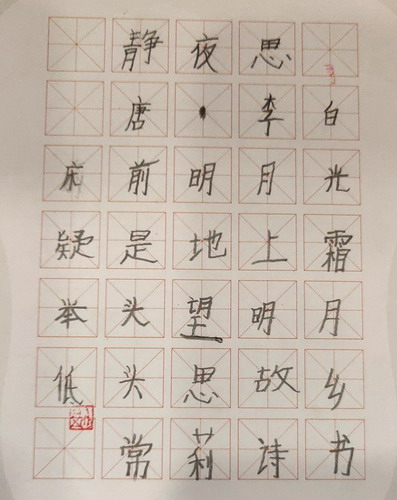 静夜思
唐·李白
床前明月光
疑是地上霜
举头望明月
低头思故乡
常莉诗书